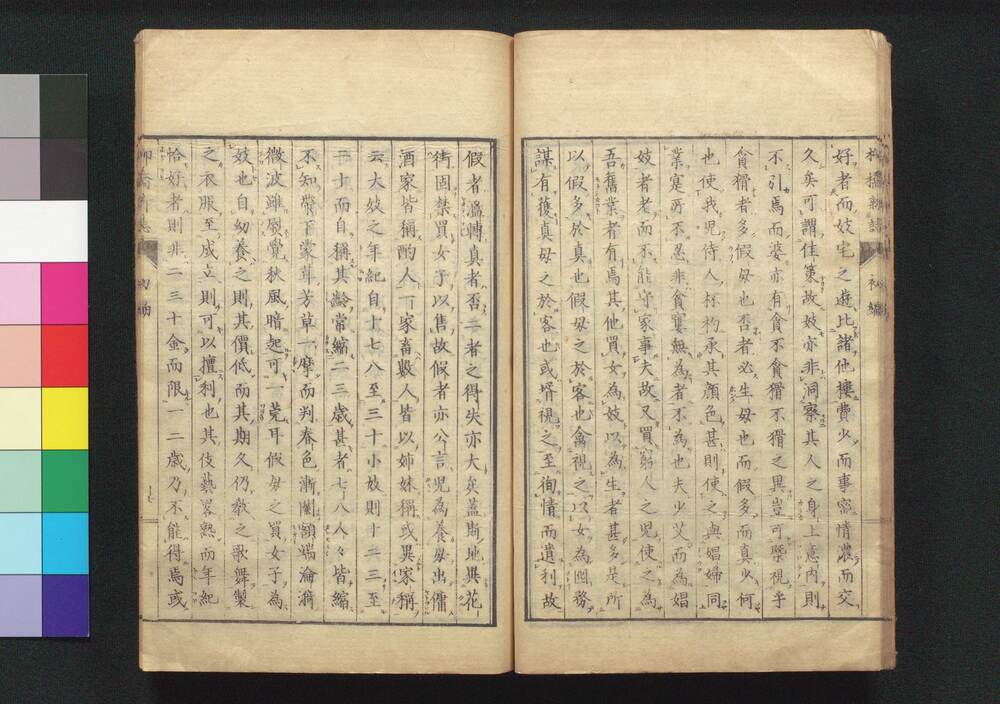 好者而妓宅之遊比諸他樓費少而事密情濃而交
久矣可謂佳策故妓亦非洞察其人之身上意內則
不引焉而婆亦有貪不貪猾不猾之異豈可槩視乎
貪猾者多假母也否者必生母也而假多而真少何
也使我児侍人杯杓承其顏色甚則使之與娼婦同
業寔所不忍非貪窶無為者不為也夫少艾而為娼
妓者老而不能守家事大故又買窮人之児使之為
吾舊業者有焉其他買女為妓以為生者甚多是所
以假多於真也假母之於客也禽視之以女為囮務
謀有獲真母之於客也或壻視之至徇情而遺利故
假者馮轉真者否二者之得失亦大矣蓋斯地異花
街固禁買女子以售故假者亦公言児為養母出傭
酒家皆稱酌人一家畜數人皆以姉妹稱或異家稱
云大妓之年紀自十七八至三十小妓則十二三至
二十而自稱其齡常縮二三歲甚者七八人々皆縮
不知帶下蒙茸芳草一摩而判春色漸闌額端淪漪
微波雖慰覺秋風暗起可一莞耳假母之買女子為
妓也自幼養之則其價低而其期久仍敎之歌舞製
之衣服至成立則可以擅利也其伎藝畧熟而年紀
恰好者則非二三十金而限一二歲乃不能得焉或
初編